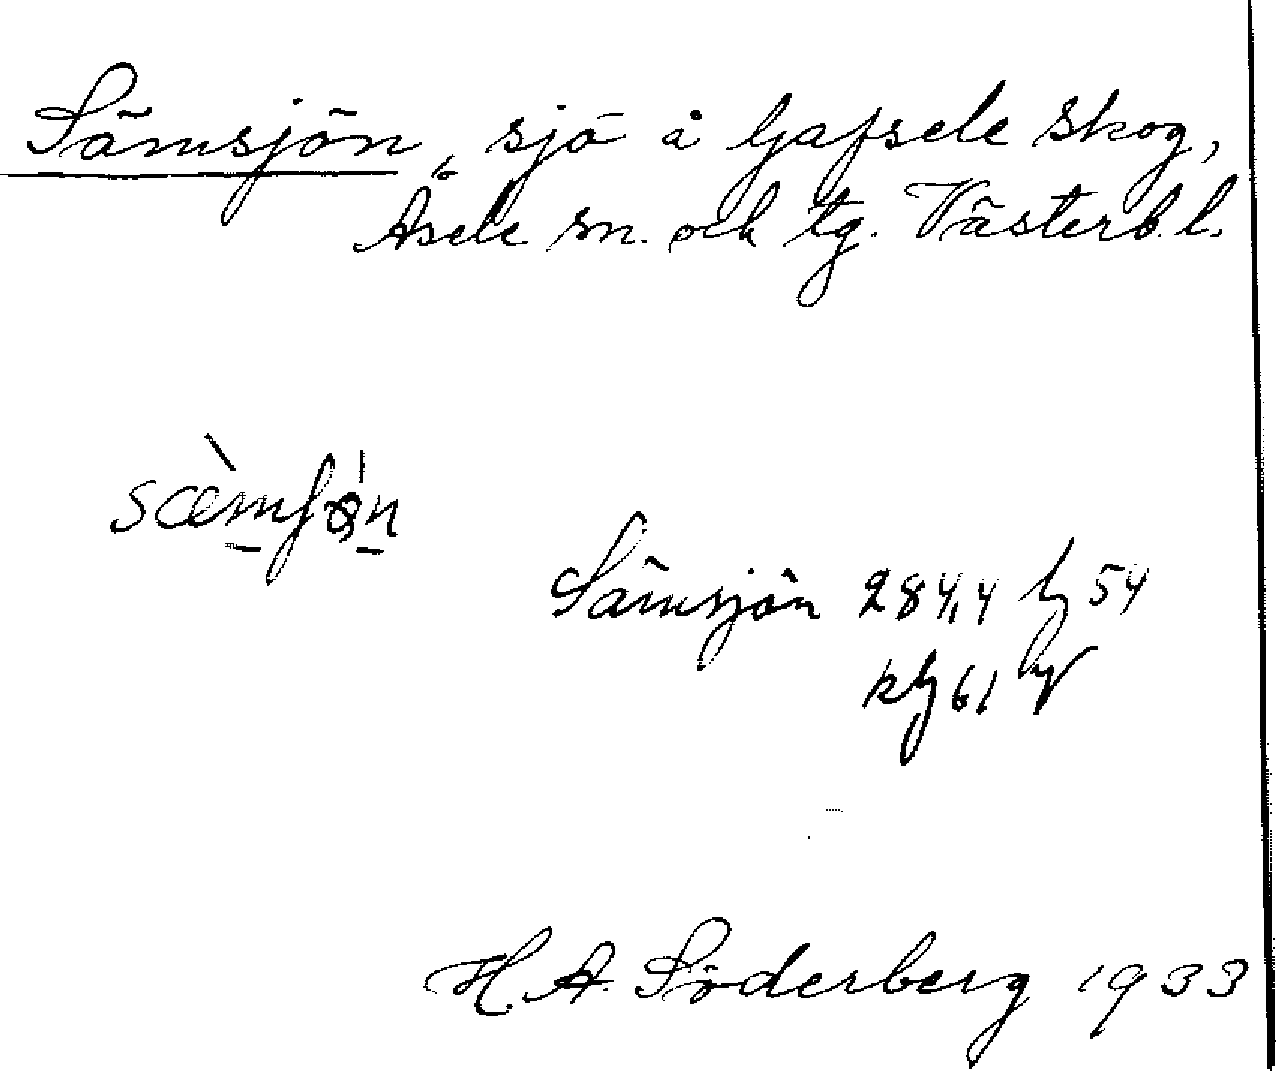 Sämsjön, sjö å Gafsele skog,
Åsele sn. och tg. Västerb. l.
Sämsjön 284,4
54
61
H. A. Söderberg 1933